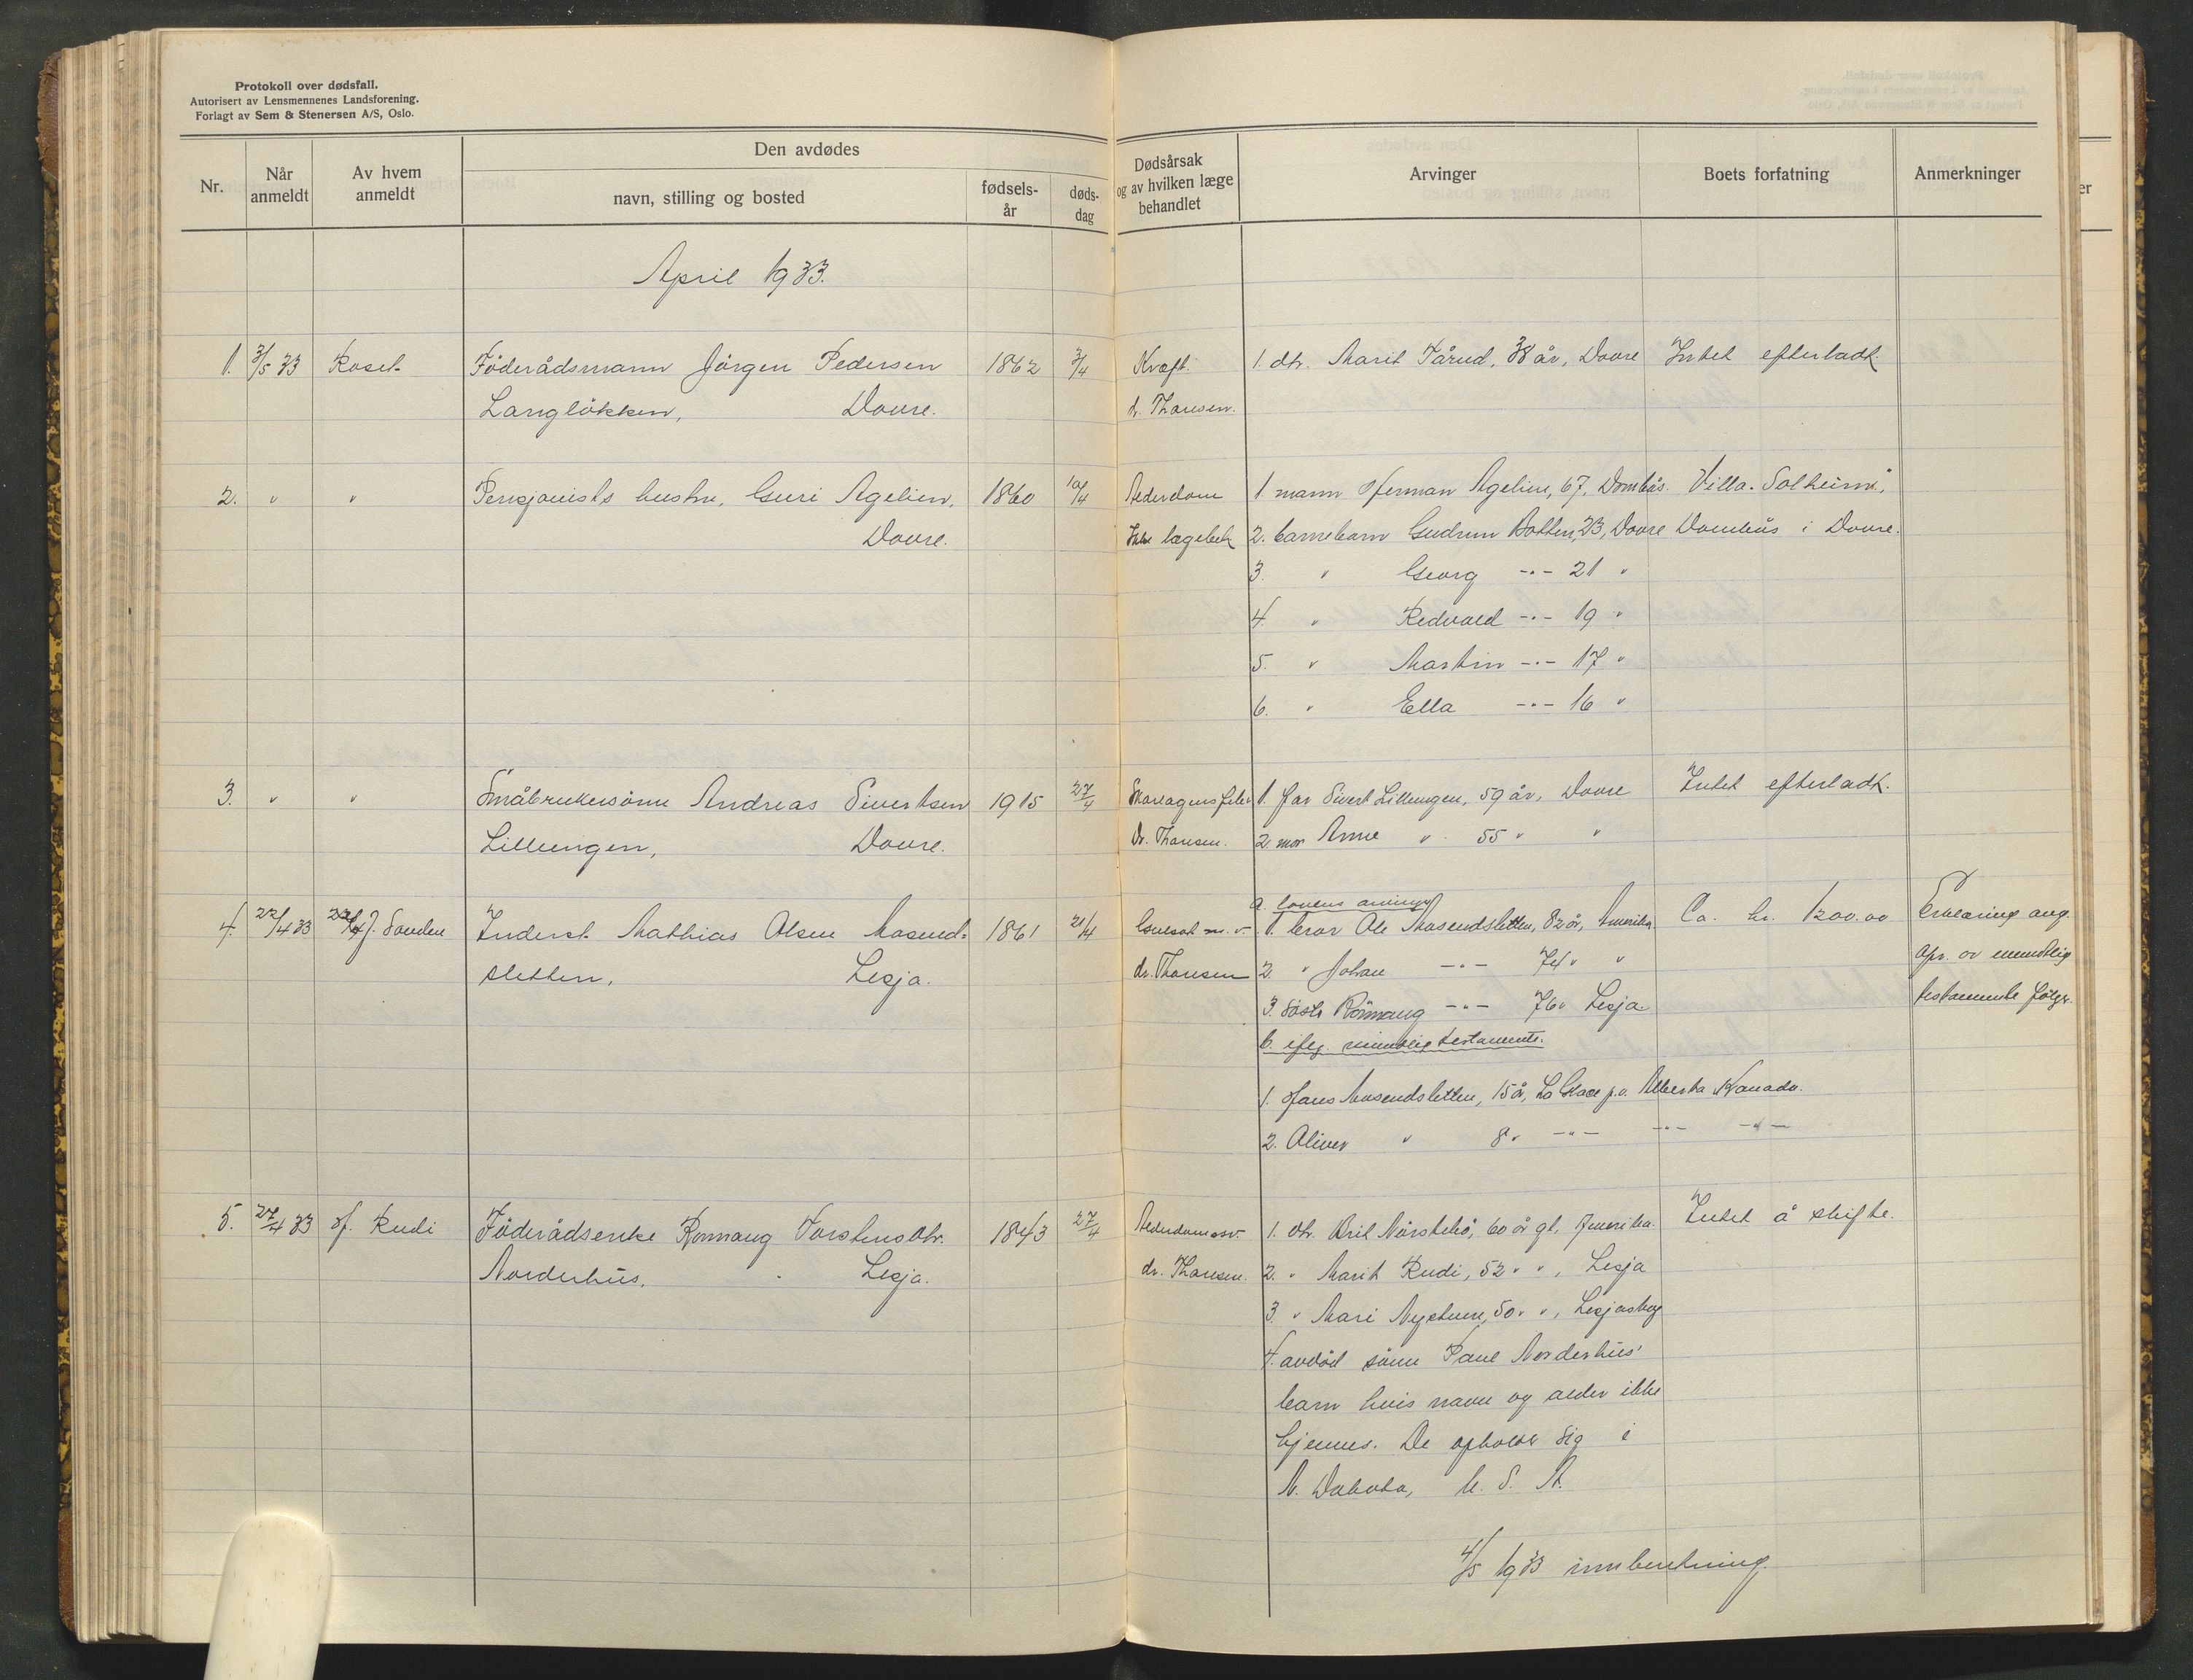 Protokoll over dødsfall.
Autorisert av Lensmennenes Landsforening.
Forlagt av Sem & Stenersen A/S, Oslo.
Nr.
Når anmeldt
Av hvem anmeldt
Den avdødes
navn, stilling og bosted
fødsels-år
døds-dag
Dødsårsak og av hvilken læge behandlet
Arvinger
Boets forfatning
Anmerkninger
April 1933.
1. 3/5 33 Koset Föderådsmann Jörgen Pedersen 1862 3/4 Kreft. 1. dtr. Marit Tårud, 38 år, Dovre Intet efterladt.
Langlökken, Dovre. d. Thoresen.
2. " " Pensjonists hustru, Guri Agelien, 1860 10/4 Alderdom 1. mann Herman Agelien, 67, Dombås. Villa "Solheim"
Dovre. Ikke lægebeh. 2. barnebarn Gudrun Botten, 23, Dovre Dombås i Dovre.
3. " Georg -"- 21 "
4. " Redvald -"- 19 "
5. " Martin -"- 17 "
6. " Ella -"- 16 "
3. " " Småbrukersönn Andreas Sivertsen 1915 27/4 1. far Sivert Lillengen, 59 år, Dovre Intet efterladt.
Lillengen, Dovre. Dr. Thoresen. 2. mor Anne " 55 " "
a. lovens arvinger
4. 22/4 33 J. Sanden Inderst Mathias Olsen Mosend= 1861 21/4 1. bror Ole Mosendsletten, 82 år, Amerika. Ca. kr. 1200.00 Erklæring ang.
sletten, Lesja. dr. Thoresen 2. " Johan -"- 74 " " opr. av mundtlig
3. söster Rönnaug -"- 76 " Lesja testamente følger.
b. iflg. mundtlig testamente.
1. Hans Mosendsletten, 15 år, La Glace p.o. Alberta Kanada.
2. Oliver " 8 " -"- -"- -"-
5. 27/4 33 H. Rudi Föderådsenke Rønnaug Torstensdtr. 1843 27/4 Alderdomssv. 1. dtr. Brit Nörstebö, 60 år gl. Amerika. Intet å skifte.
Norderhus, Lesja. dr. Thoresen. 2. " Marit Rudi, 52 " ", Lesja
3. " Mari Nystuen, 50 " ", Lesjaskog
4. avdöd sönn Paul Norderhus'
barn hvis navn og alder ikke
kjennes. De opholder sig i
N. Dakota, U. S. A.
4/5 1933 innberetning.